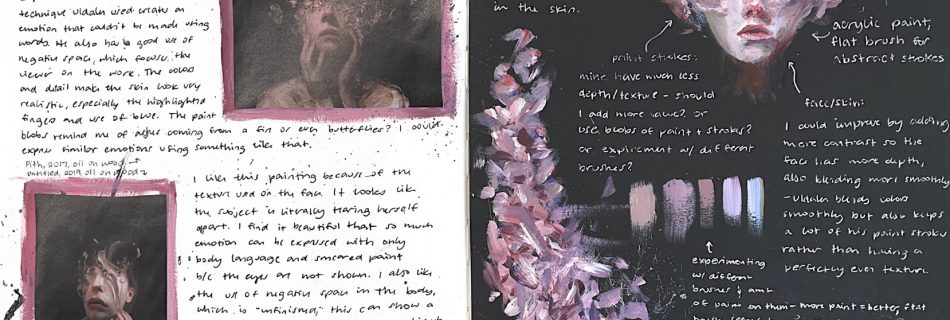 technique Uldalen used creates an
emotion that couldn't be made using
words. He also has good use of
negative space, which focuses the
viewer on the work. The colors
and detail make the skin look very
realistic, especially the highlighted
fingers and use of blue. The paint
blobs remind me of ashes coming from a fire or even butterflies? I could
express similar emotions using something like that.
Pith, 2017, oil on wood
untitled, 2019, oil on wood
I like this painting because of the
texture used on the face. It looks like
the subject is literally tearing herself
apart. I find it beautiful that so much
emotion can be expressed with only
body language and smeared paint
b/c the eyes are not shown. I also like
the use of negative space in the body,
which is "unfinished," this can show a
in the skin.
acrylic paint,
flat brush for
abstract strokes
paint strokes:
mine have much less
depth/texture - should
I add more value? or
use blobs of paint + strokes?
or expiriment w/ different
brushes?
face/skin:
I could improve by adding
more contrast so the
face has more depth,
also blending more smoothly
- Uldalen blends colors
smoothly but also keeps
a lot of his paint strokes
rather than having a
perfectly even texture.
experimenting
w/ different
brushes & amt.
of paint on them - more paint = better, flat